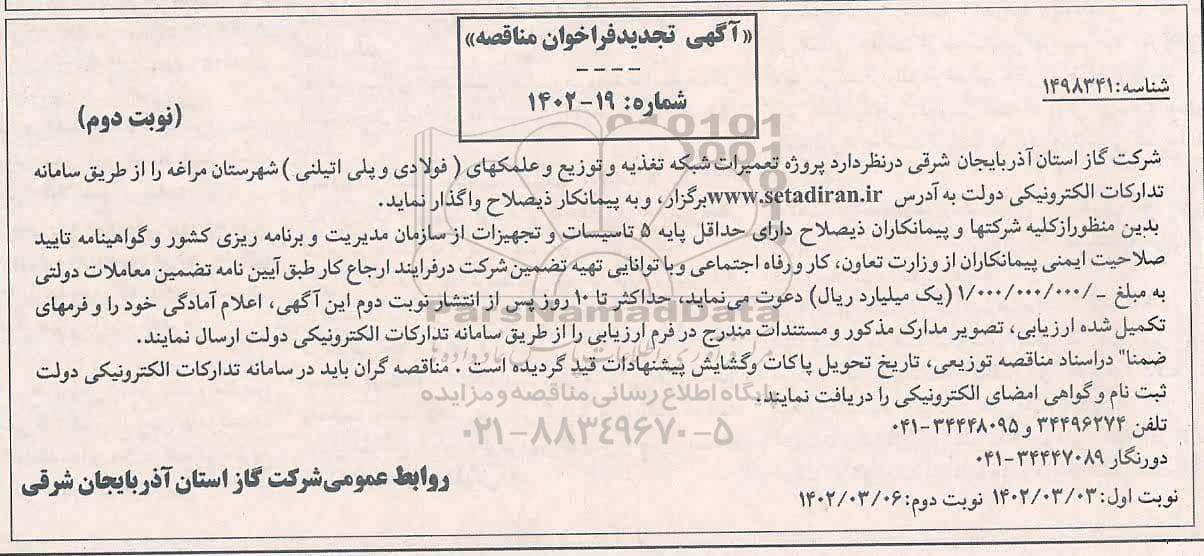 «آگهی تجدیدفراخوان مناقصه»
شماره: ۱۹-۱۴۰۲
شناسه:۱۴۹۸۳۴۱
(نوبت دوم)
شرکت گاز استان آذربایجان شرقی درنظردارد پروژه تعمیرات شبکه تغذیه و توزیع و علمکهای ( فولادی و پلی اتیلنی ) شهرستان مراغه را از طریق سامانه
تدارکات الکترونیکی دولت به آدرس www.setadiran.ir برگزار، و به پیمانکار ذیصلاح واگذار نماید.
بدین منظورازکلیه شرکتها و پیمانکاران ذیصلاح دارای حداقل پایه ۵ تاسیسات و تجهیزات از سازمان مدیریت و برنامه ریزی کشور و گواهینامه تایید
صلاحیت ایمنی پیمانکاران از وزارت تعاون، کار و رفاه اجتماعی و با توانایی تهیه تضمین شرکت درفرایند ارجاع کار طبق آیین نامه تضمین معاملات دولتی
به مبلغ -/۱/۰۰۰/۰۰۰/۰۰۰ (یک میلیارد ریال) دعوت می‌نماید، حداکثر تا ۱۰ روز پس از انتشار نوبت دوم این آگهی، اعلام آمادگی خود را و فرمهای
تکمیل شده ارزیابی، تصویر مدارک مذکور و مستندات مندرج در فرم ارزیابی را از طریق سامانه تدارکات الکترونیکی دولت ارسال نمایند.
ضمنا" دراسناد مناقصه توزیعی، تاریخ تحویل پاکات وگشایش پیشنهادات قید گردیده است . مناقصه گران باید در سامانه تدارکات الکترونیکی دولت
ثبت نام و گواهی امضای الکترونیکی را دریافت نمایند.
تلفن ۳۴۴۹۶۲۷۴ و ۳۴۴۴۸۰۹۵-۰۴۱
دورنگار ۳۴۴۴۷۰۸۹-۰۴۱
نوبت اول:۱۴۰۲/۰۳/۰۳ نوبت دوم:۱۴۰۲/۰۳/۰۶
روابط عمومی شرکت گاز استان آذربایجان شرقی
ParsNamadData
پایگاه اطلاع رسانی مناقصه و مزایده
۰۲۱-۸۸۳۴۹۶۷۰-۵